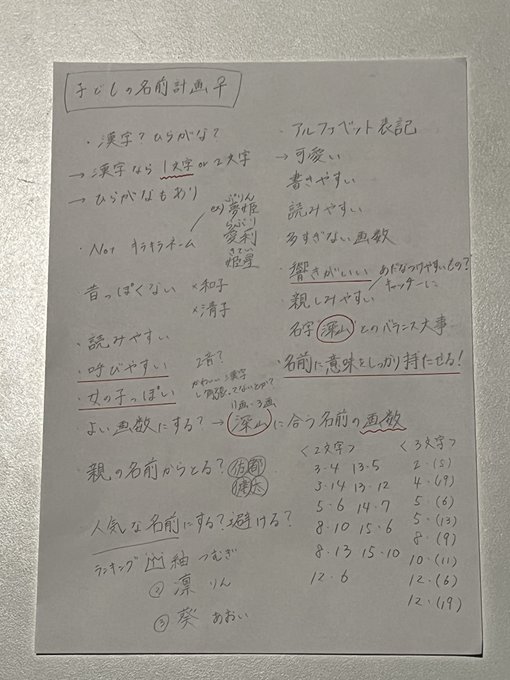 子どもの名前計画♀
・漢字?ひらがな?
→漢字なら1文字or2文字
→ひらがなもあり
・Not キラキラネーム
ex)夢姫 ぷりん
愛利 らぶり
姫星 きてぃ
昔っぽくない ×和子
×清子
・読みやすい
・呼びやすい 2音?
・女の子っぽい かわいい漢字
よい画数にする?→深山に合う名前の画数
11画・3画
・親の名前からとる?佑都
人気な名前にする?避ける?
ランキング 紬 つむぎ
② 凛 りん
③ 葵 あおい
・アルファベット表記
→可愛い
書きやすい
読みやすい
多すぎない画数
・響きがいい
親しみやすい あだなつけやすいもの?
名字深山とのバランス大事
・名前に意味をしっかり持たせる!
<2文字>
3・4 13・5
3・14 13・12
5・6 14・7
8・10 15・6
8・13 15・10
12・6
<3文字>
2・(5)
4・(19)
5・(6)
5・(13)
8・(9)
10・(11)
12・(6)
12・(19)